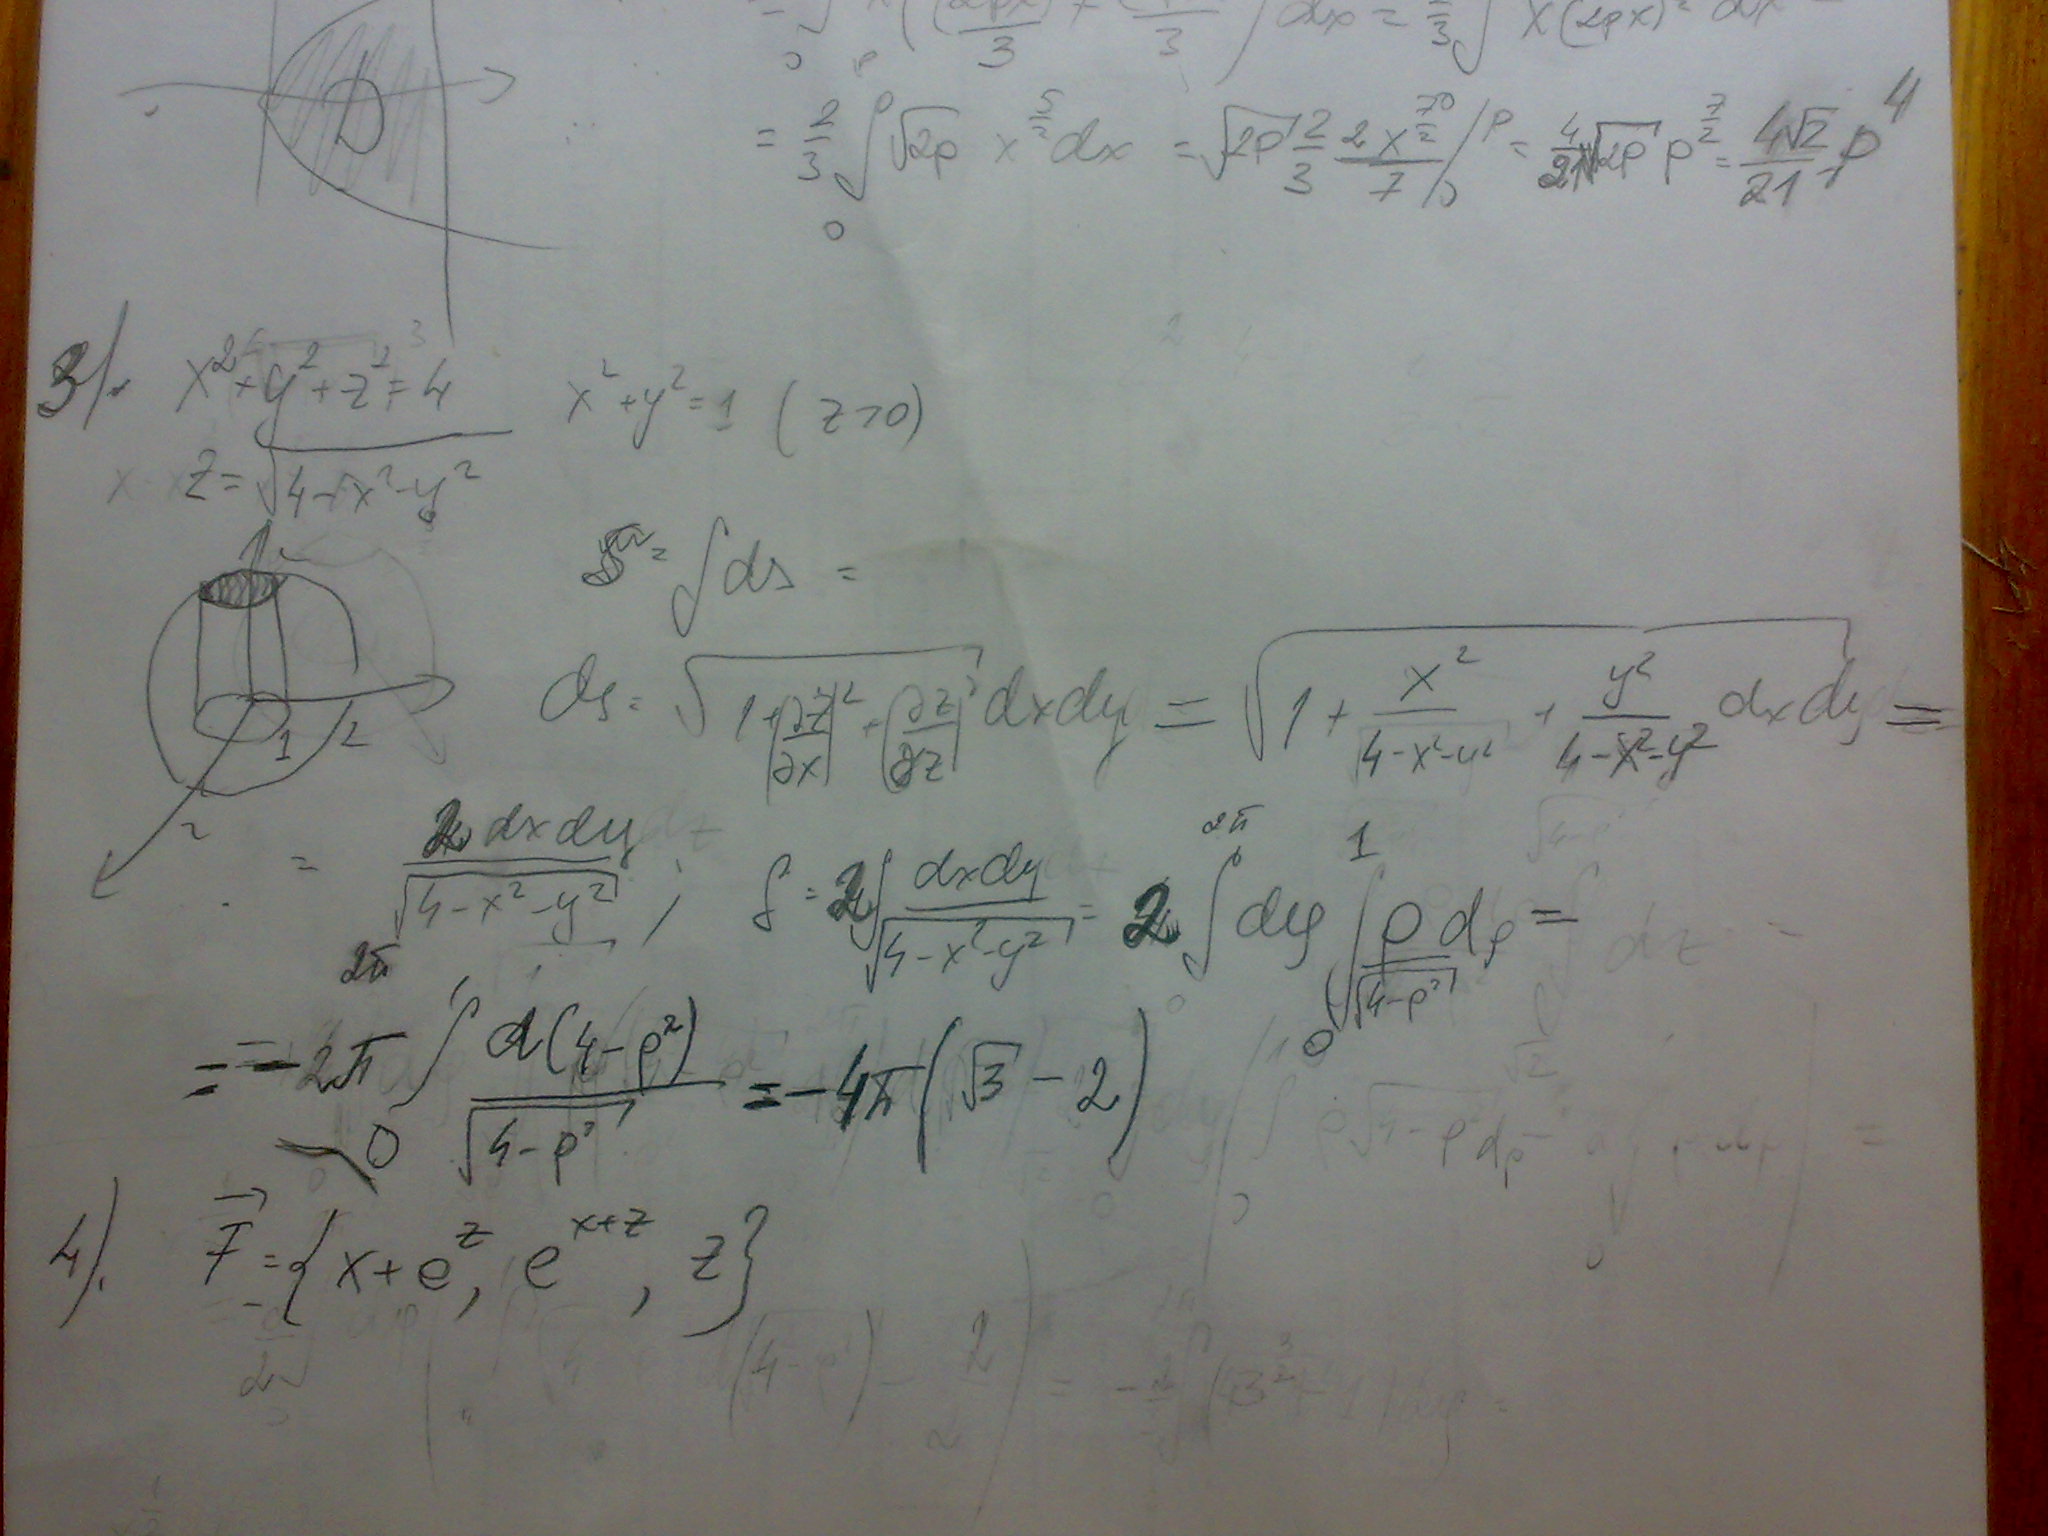 x(2px)² dx
D
= 2/3 ∫₀^p √2p x^(5/2) dx = √2p 2/3 2x^(7/2)/7 |₀^p = 4/21 √2p p^(7/2) = 4√2/21 p⁴
3). x² + y² + z² = 4 x² + y² = 1 (z > 0)
z = √(4 - x² - y²)
= ∫ ds =
1 2
2
ds = √(1 + (∂z/∂x)² + (∂z/∂z)²) dxdy = √(1 + x²/(4-x²-y²) + y²/(4-x²-y²)) dxdy =
= 2 dxdy/√(4-x²-y²) ; S = 2∫ dxdy/√(4-x²-y²) = 2 ∫₀^2π dφ ∫₀^1 ρdρ/√(4-ρ²) =
= -2π ∫₀^1 d(4-ρ²)/√(4-ρ²) = -4π(√3 - 2)
4). F⃗ = {x + e^z, e^(x+z), z}